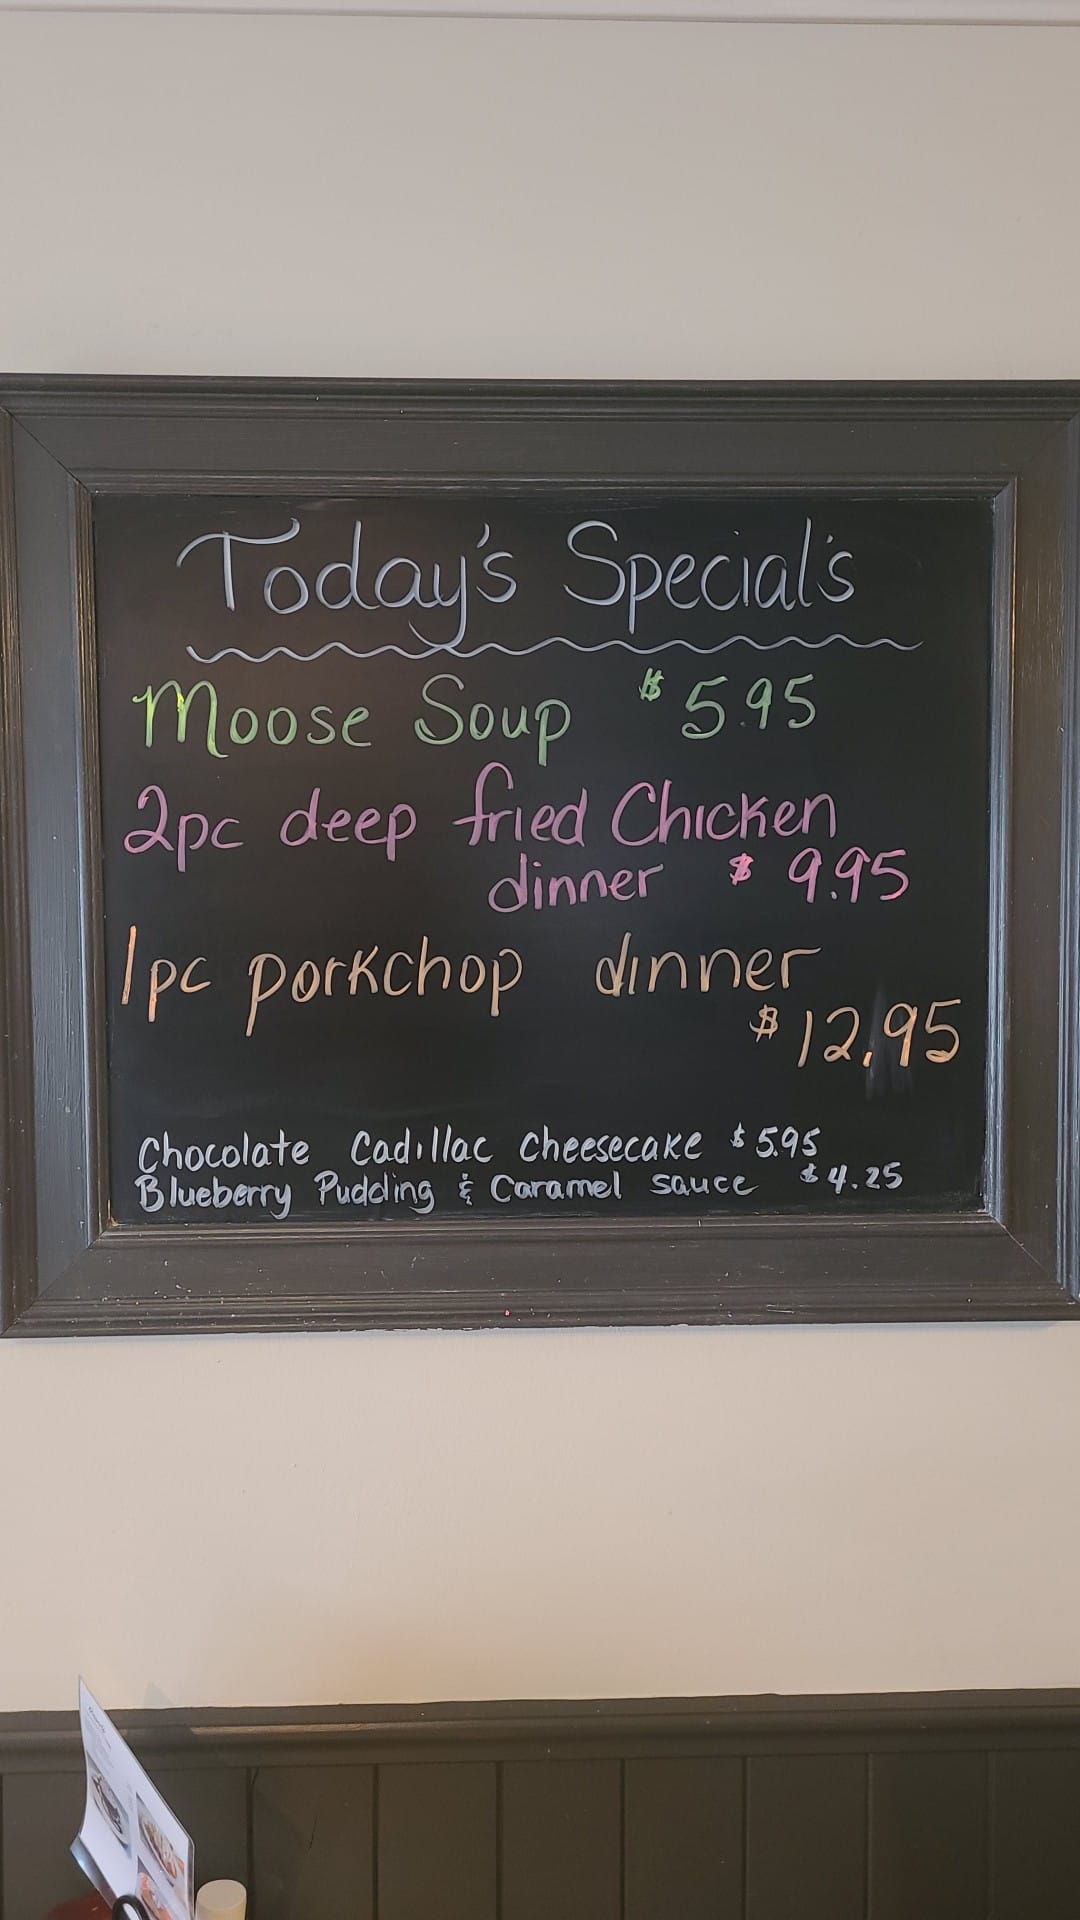 Today's Special's
Moose Soup $5.95
2pc deep fried Chicken
dinner $ 9.95
1pc porkchop dinner
$12.95
Chocolate Cadillac Cheesecake $5.95
Blueberry Pudding & Caramel sauce $4.25